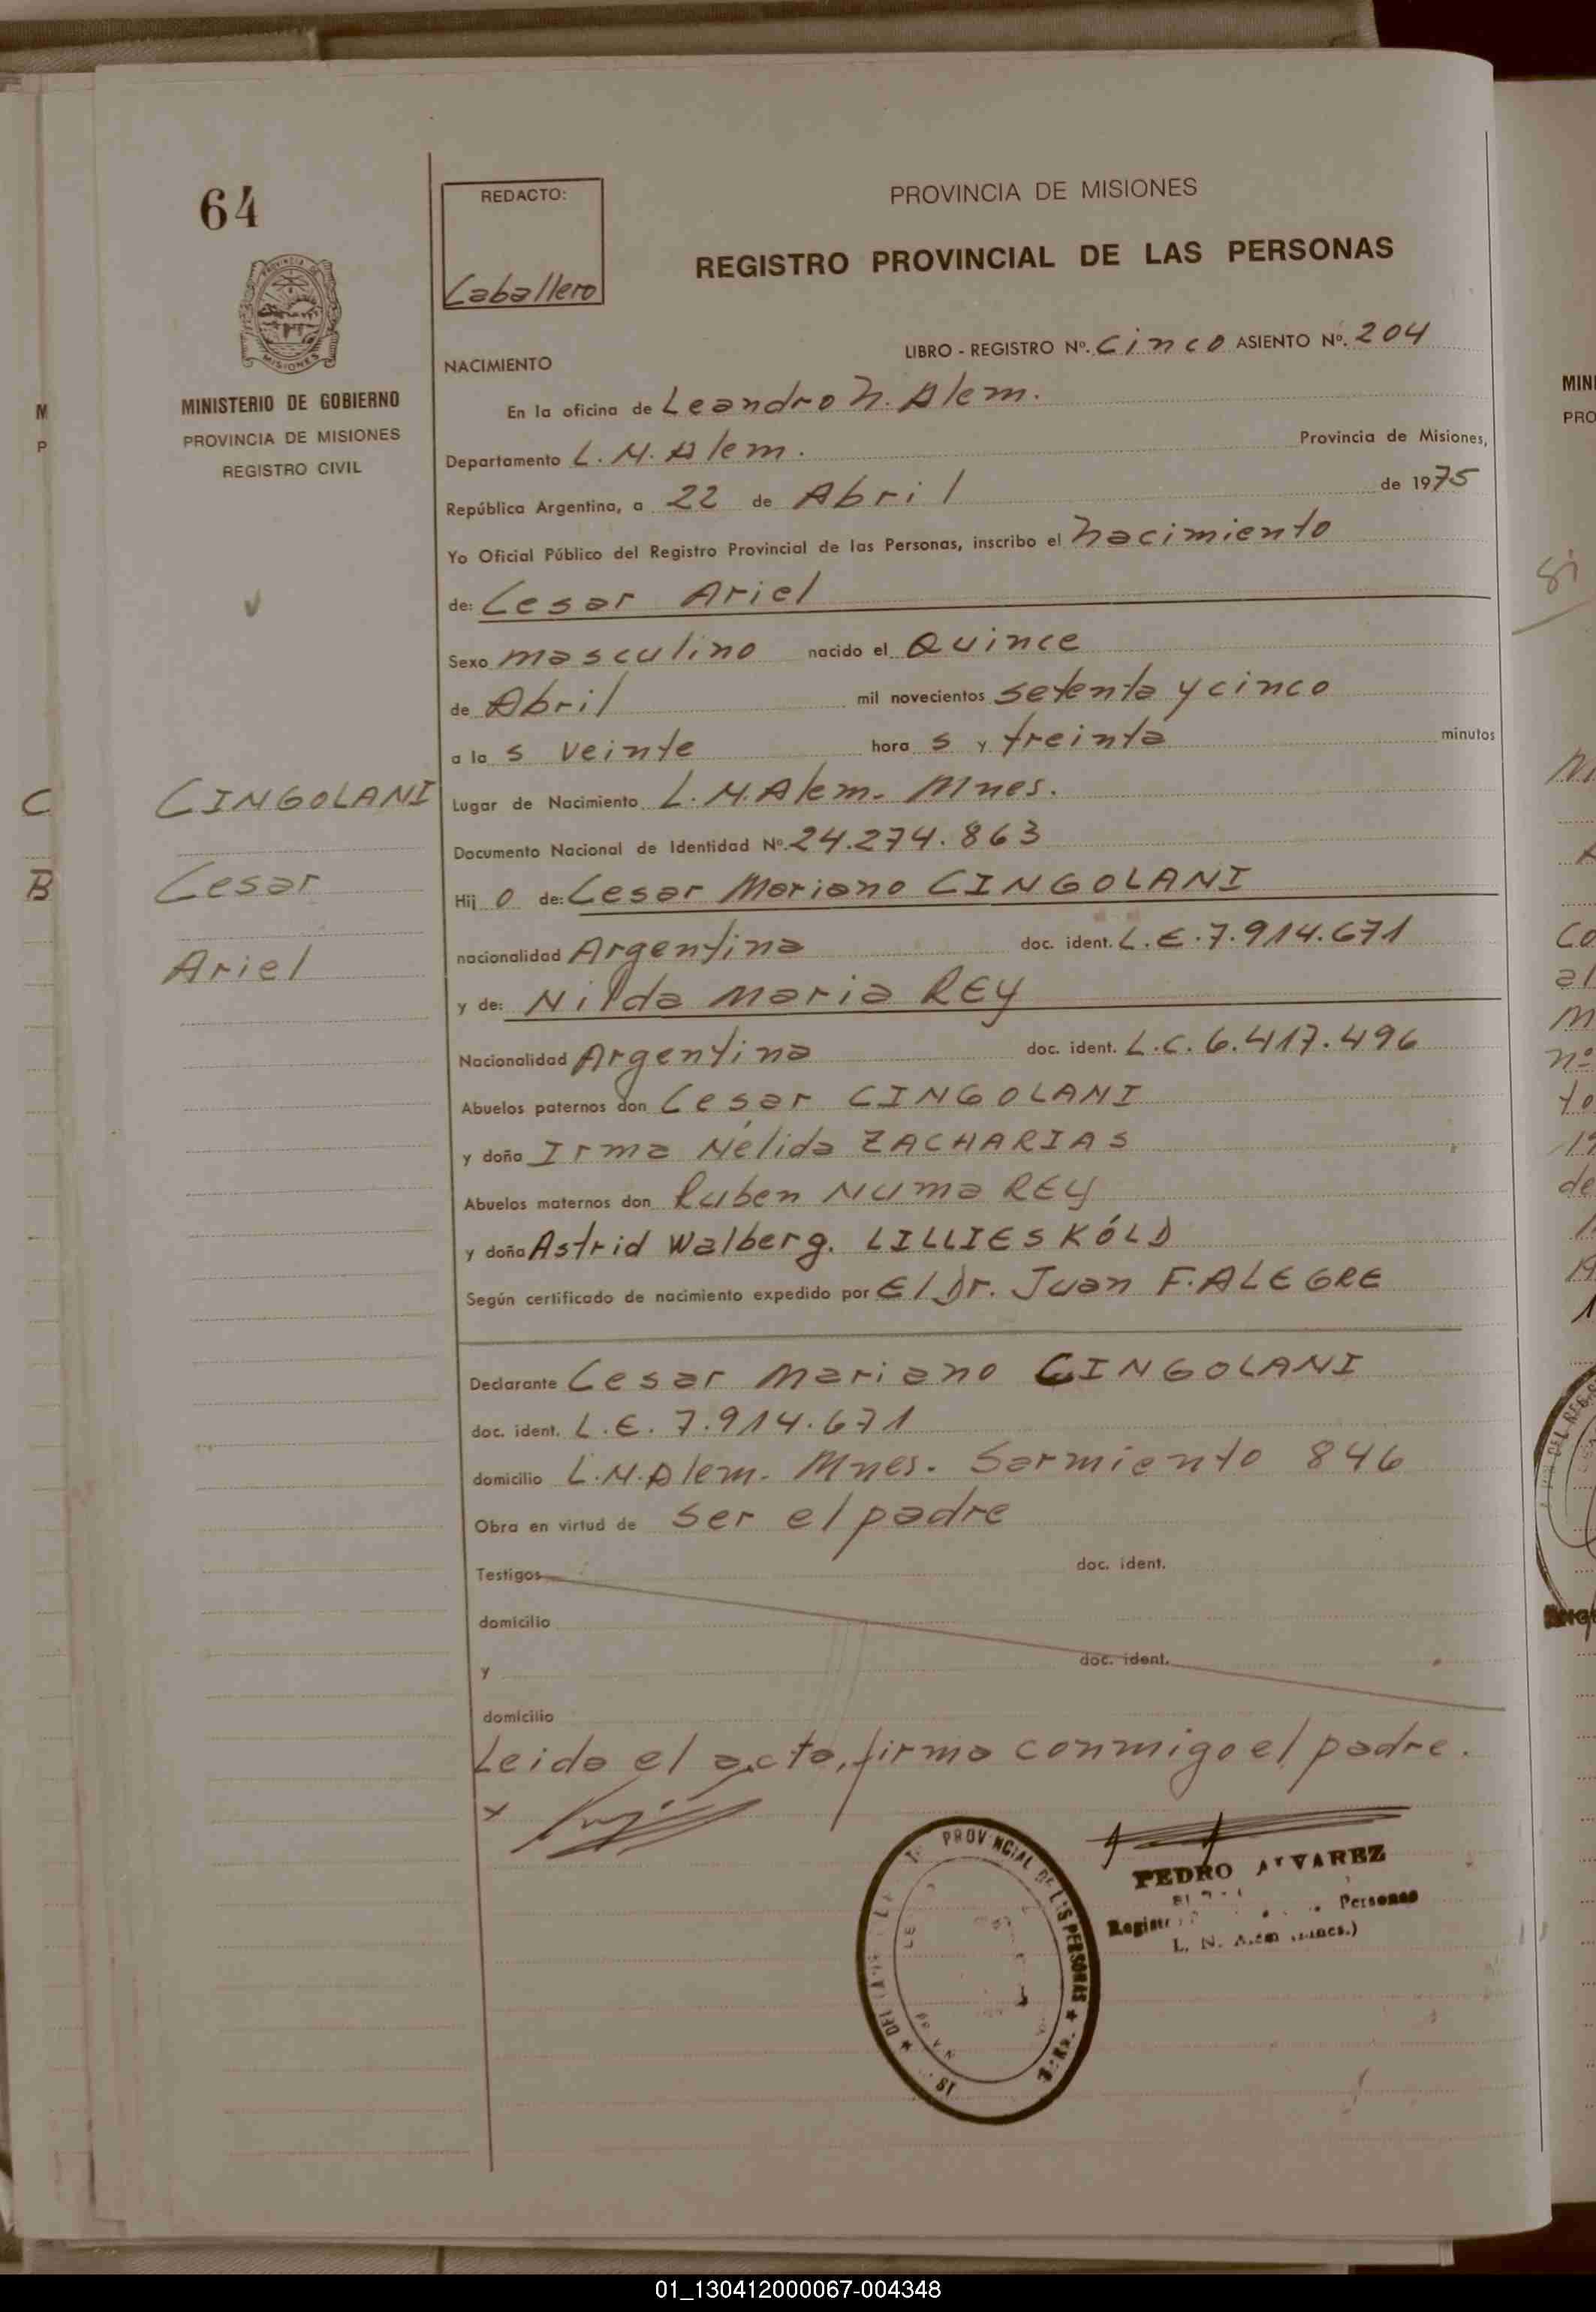 64
REDACTO:
Caballero
PROVINCIA DE MISIONES
REGISTRO PROVINCIAL DE LAS PERSONAS
PROVINCIA DE
MISIONES
MINISTERIO DE GOBIERNO
PROVINCIA DE MISIONES
REGISTRO CIVIL
LIBRO - REGISTRO Nº. Cinco ASIENTO Nº. 204
NACIMIENTO
En la oficina de Leandro N. Alem.
Departamento L. N. Alem. Provincia de Misiones,
República Argentina, a 22 de Abril de 1975
Yo Oficial Público del Registro Provincial de las Personas, inscribo el nacimiento
de: Cesar Ariel
Sexo masculino nacido el Quince
de Abril mil novecientos setenta y cinco
a la s veinte hora s y treinta minutos
Lugar de Nacimiento L. N. Alem- Mnes.
Documento Nacional de Identidad Nº 24.274.863
CINGOLANI
Cesar
Ariel
Hij o de: Cesar Mariano CINGOLANI
nacionalidad Argentina doc. ident. L.E. 7.914.671
y de: Nilda Maria REY
Nacionalidad Argentina doc. ident. L.C. 6.417.496
Abuelos paternos don Cesar CINGOLANI
y doña Irma Nélida ZACHARIAS
Abuelos maternos don Ruben Numa REY
y doña Astrid Walberg. LILLIESKÓLD
Según certificado de nacimiento expedido por El Dr. Juan F. ALEGRE
Declarante Cesar Mariano CINGOLANI
doc. ident. L.E. 7.914.671
domicilio L.N.Alem- Mnes. Sarmiento 846
Obra en virtud de ser el padre
Testigos doc. ident.
domicilio
y doc. ident.
domicilio
Leida el acta, firma conmigo el padre.
x
PROVINCIAL DE LAS PERSONAS
PEDRO ALVAREZ
Personas
L. N. Alem
M
P
C
B
MINI
PRO
Si
01_130412000067-004348